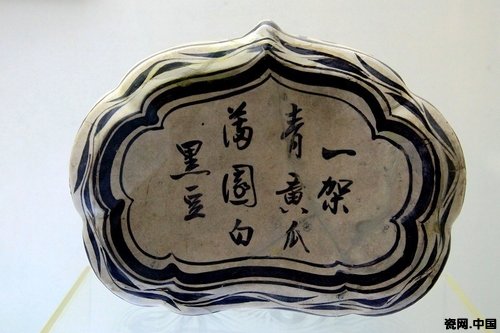 一架
青黄瓜
满園白
黑豆
瓷网.中国